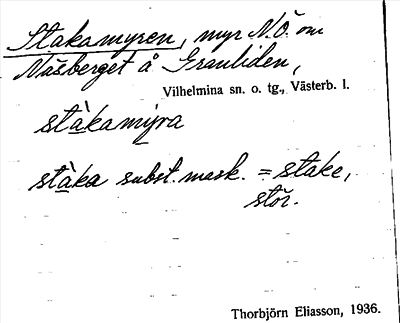 Stakamyren, myr N.Ö. om
Näsberget å Granliden,
Vilhelmina sn. o. tg., Västerb. l.
stàkamyra
stàka subst. mask. = stake,
stör.
Thorbjörn Eliasson, 1936.